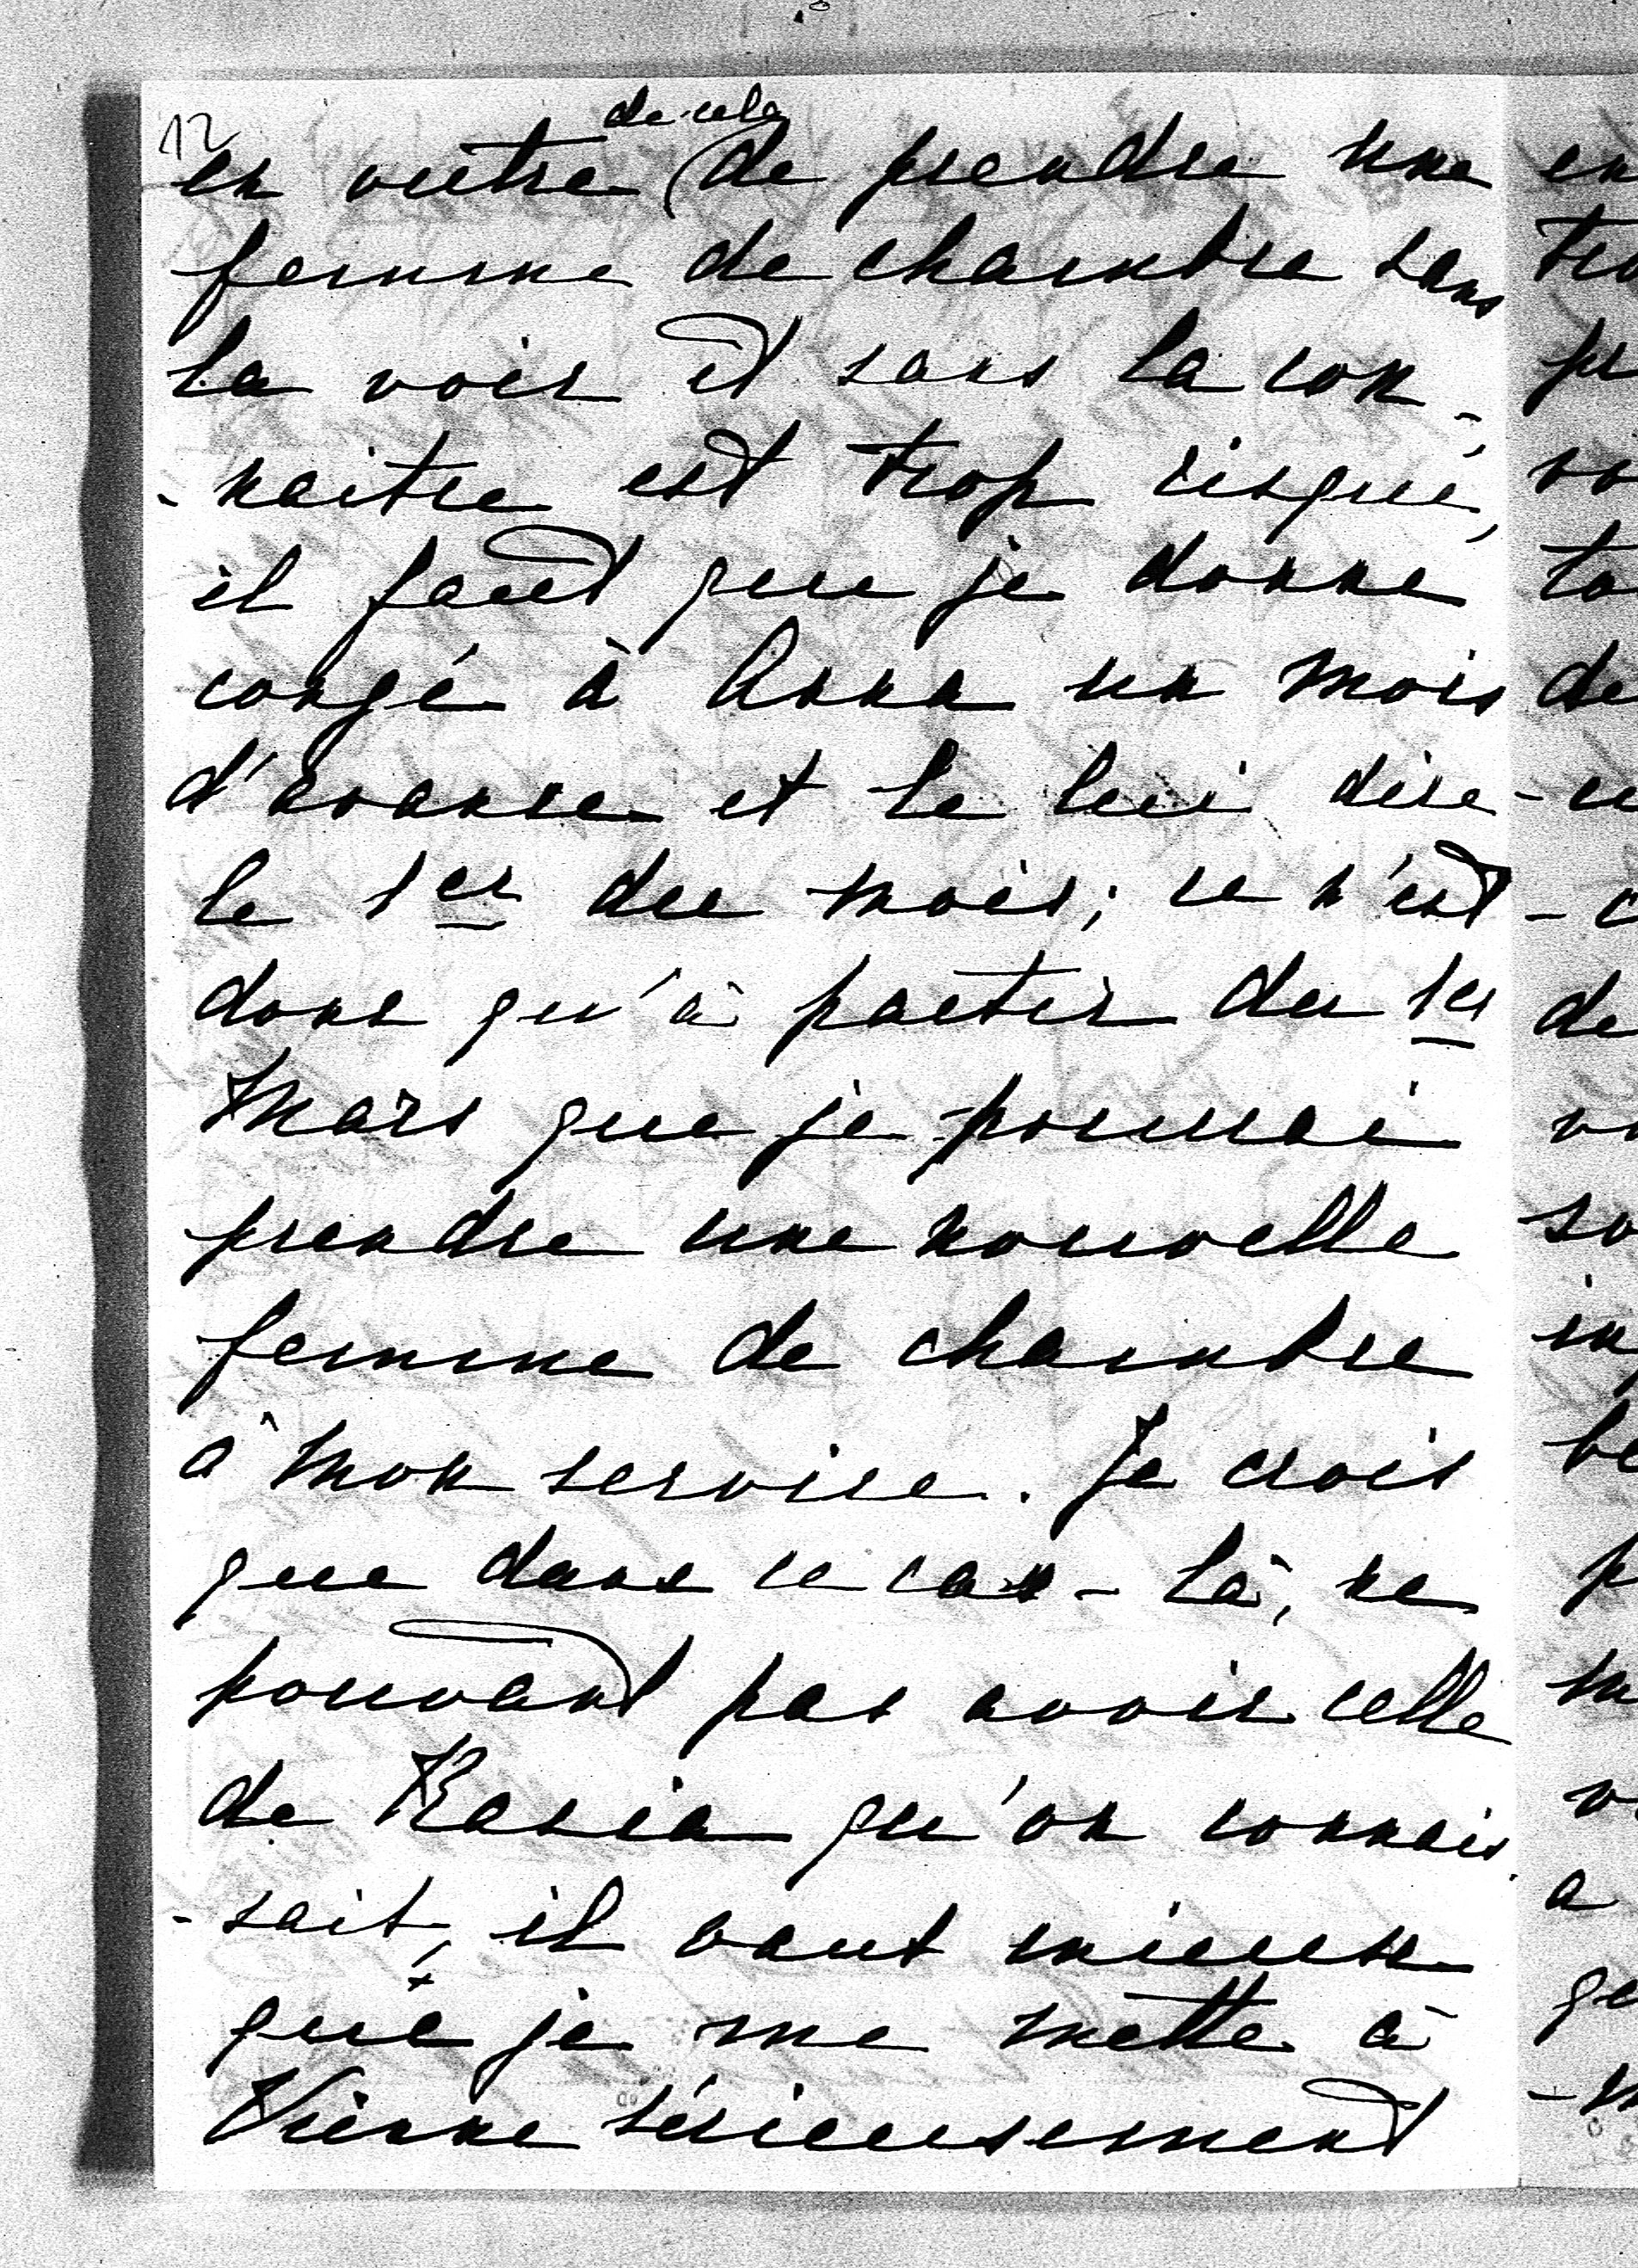 12
de cela
en outre (de prendre une
femme de chambre sans
la voir et sans la con-
-naitre est trop risqué,
il faut que je donne
congé à Anna un mois
d'avance et le lui dire
le 1er du mois; ce n'est
donc qu'à partir du 1er
Mars que je pourrai
prendre une nouvelle
femme de chambre
à mon service. Je crois
que dans ce cas-là, ne
pouvant pas avoir celle
de Kasia qu'on connais
-sait, il vaut mieux
que je me mette à
Vienne sérieusement